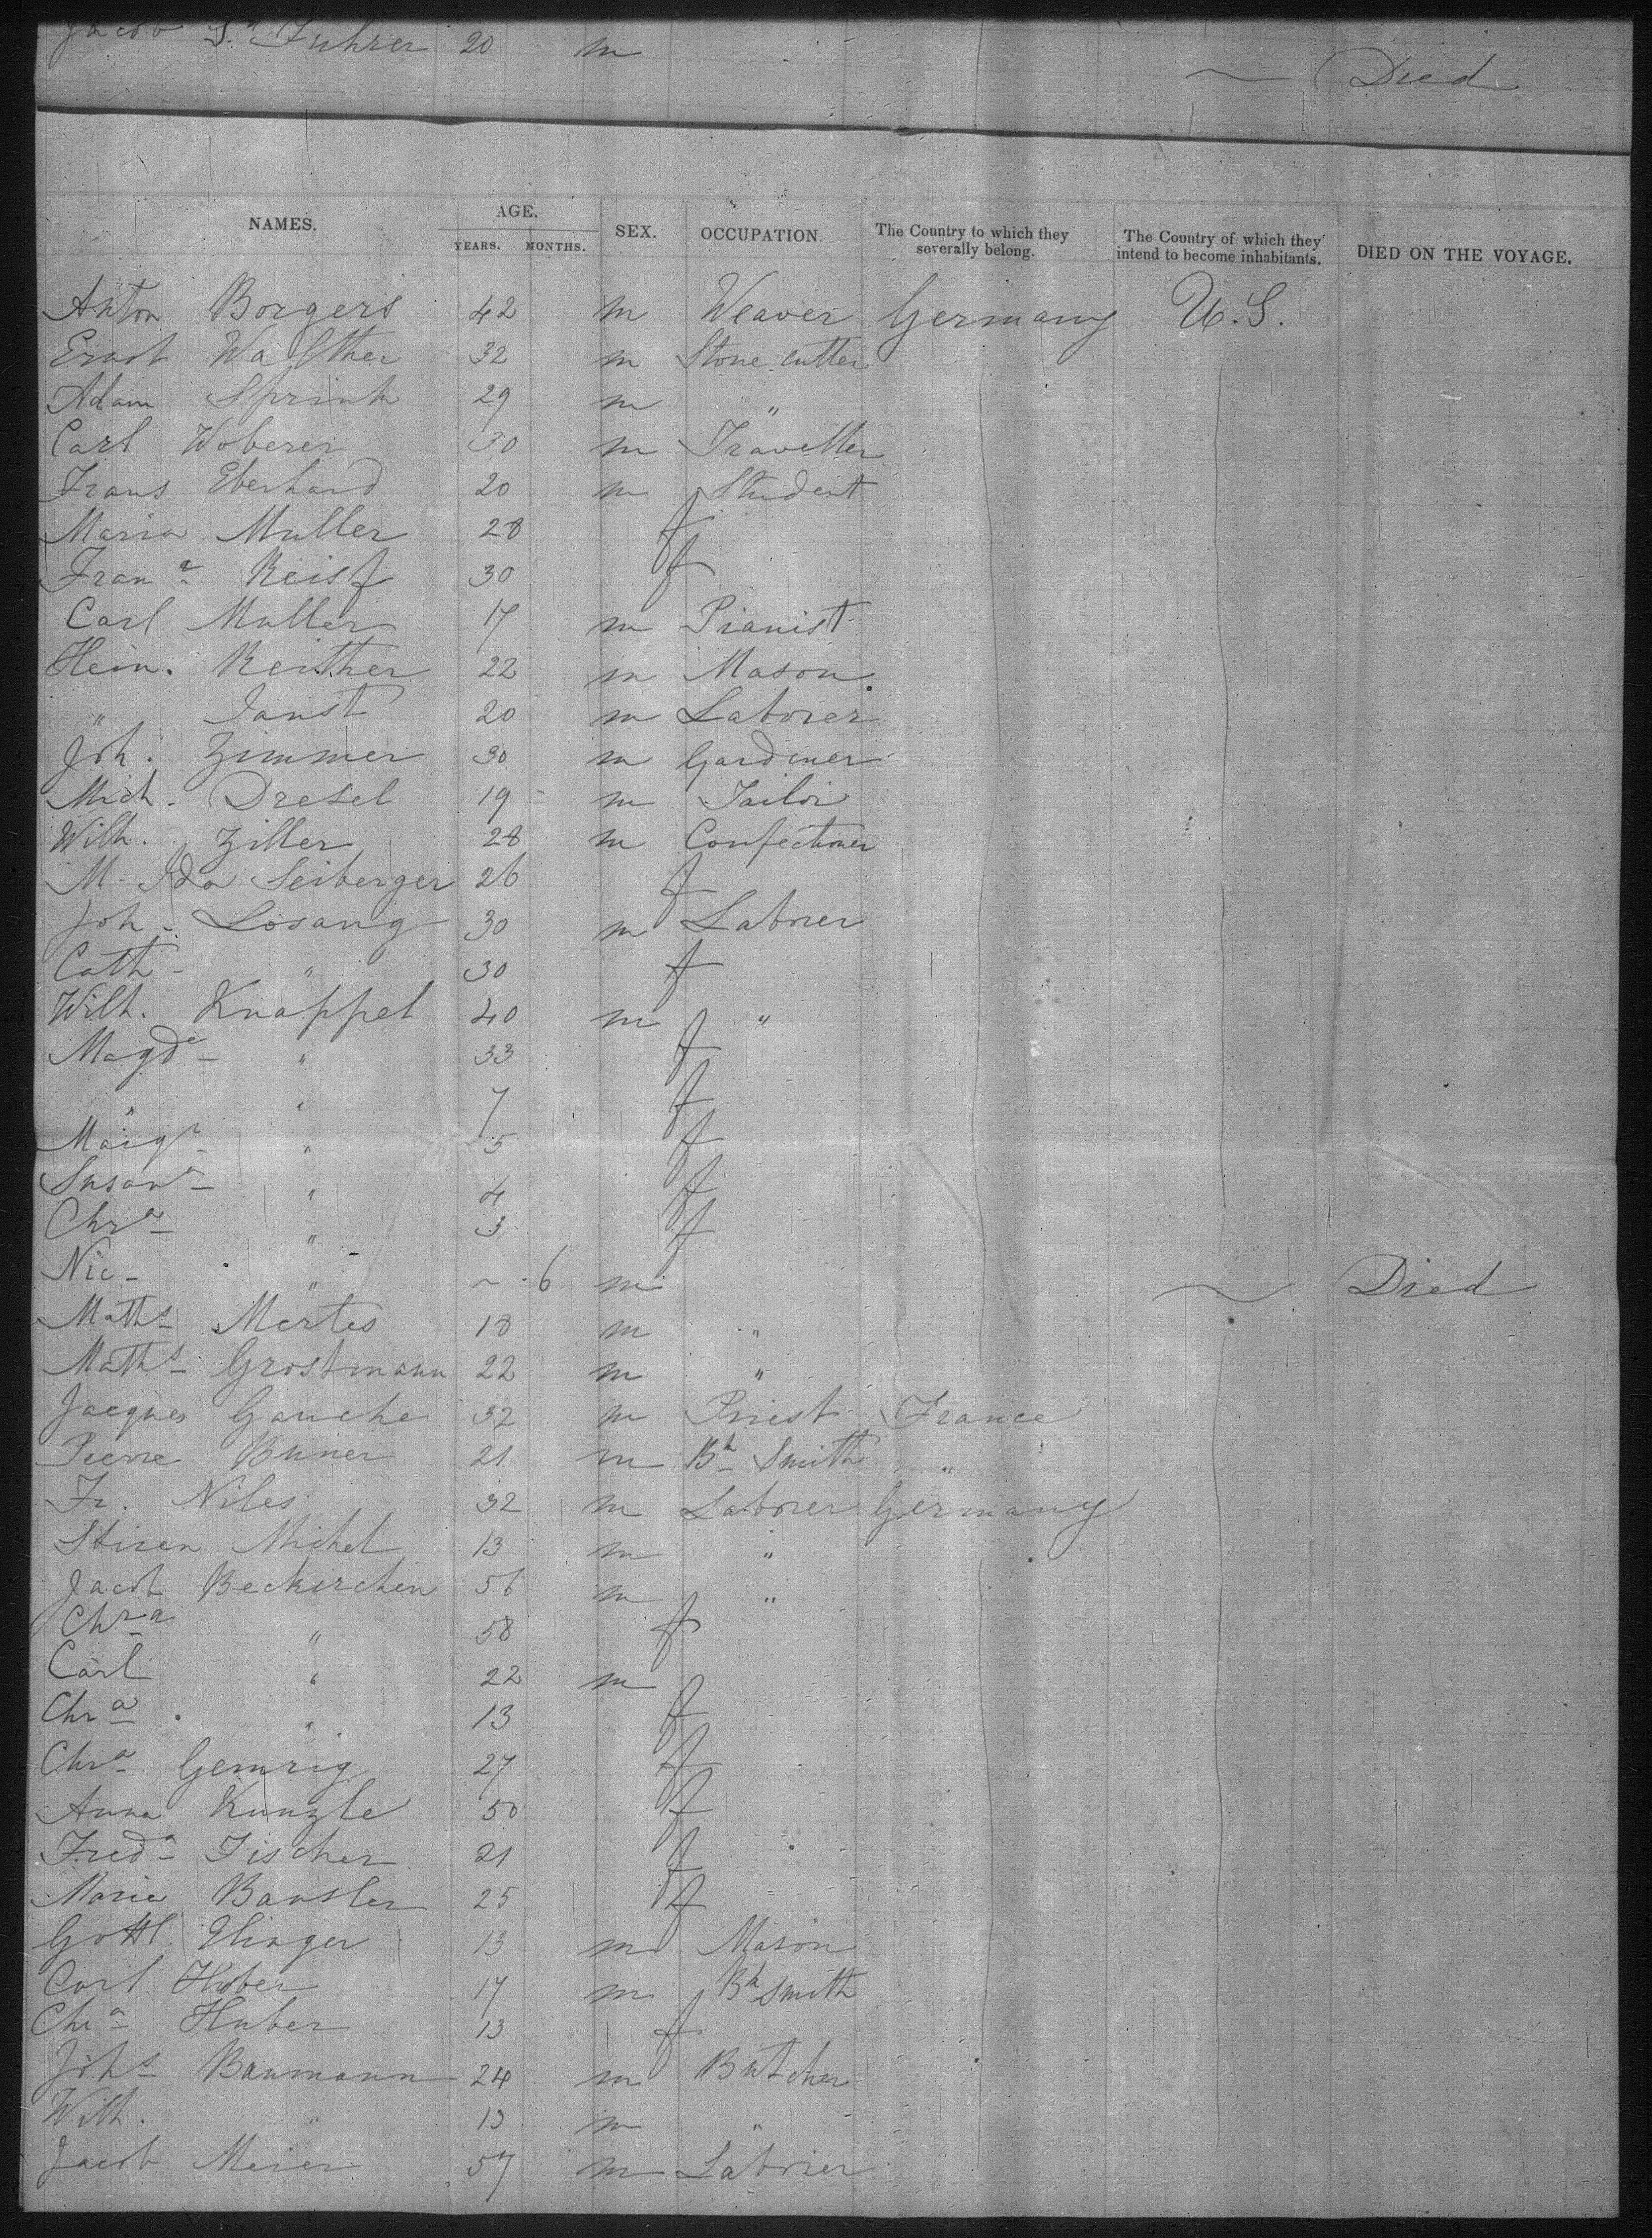 Jacob Sn Fuhrer 20 m
~ Died
NAMES. AGE. YEARS. MONTHS. SEX. OCCUPATION. The Country to which they severally belong. The Country of which they intend to become inhabitants. DIED ON THE VOYAGE.
Anton Borgers 42 m Weaver Germany U.S.
Ernst Walther 32 m Stone cutter
Adam Sprink 29 m "
Carl Woberer 30 m Traveller
Frans Eberhard 20 m Student
Maria Muller 28 f
Frana Reisf 30 f
Carl Muller 17 m Pianist
Hein. Reither 22 m Mason
" Janst 20 m Laborer
Joh. Zimmer 30 m Gardiner
Mich. Dresel 19 m Tailor
Wilh. Ziller 28 m Confectioner
M. Ida Seiberger 26 f
Joh. Losang 30 m Laborer
Cath " 30 f
Wilh. Knappel 40 m "
Magde " 33 f
" " 7 f
Margr " 5 f
Susana " 4 f
Chra " 3 f
Nic " ~ 6 m ~ Died
Maths Mertes 18 m "
Maths Grostmann 22 m "
Jacques Gauche 32 m Priest France
Pierre Buner 21 m Bk Smith "
Fr. Niles 32 m Laborer Germany
Stisen Michel 13 m "
Jacob Beckirchen 56 m "
Chra " 58 f
Carl " 22 m
Chra " 13 f
Chra Gemrig 27 f
Anna Kunzle 50 f
Freda Fischer 21 f
Maria Bansler 25 f
Gottl. Elinger 13 m Mason
Carl Huber 17 m Bk Smith
Chra Huber 13 f
Johs Baumann 24 m Butcher
Wilh. " 13 m "
Jacob Meier 57 m Laborer